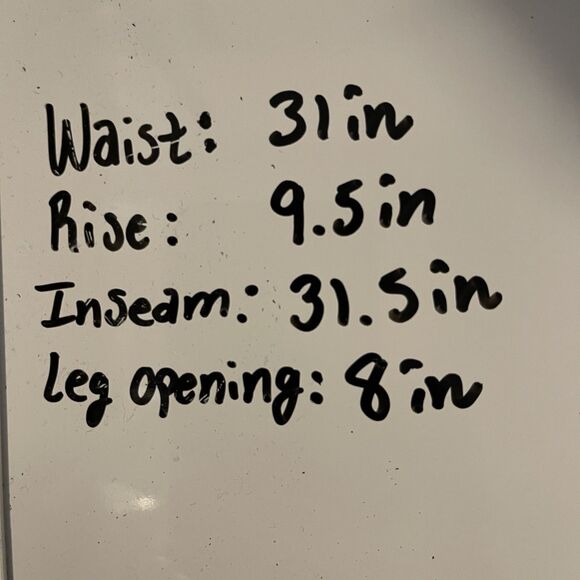 Waist: 31in
Rise: 9.5in
Inseam: 31.5in
Leg opening: 8in